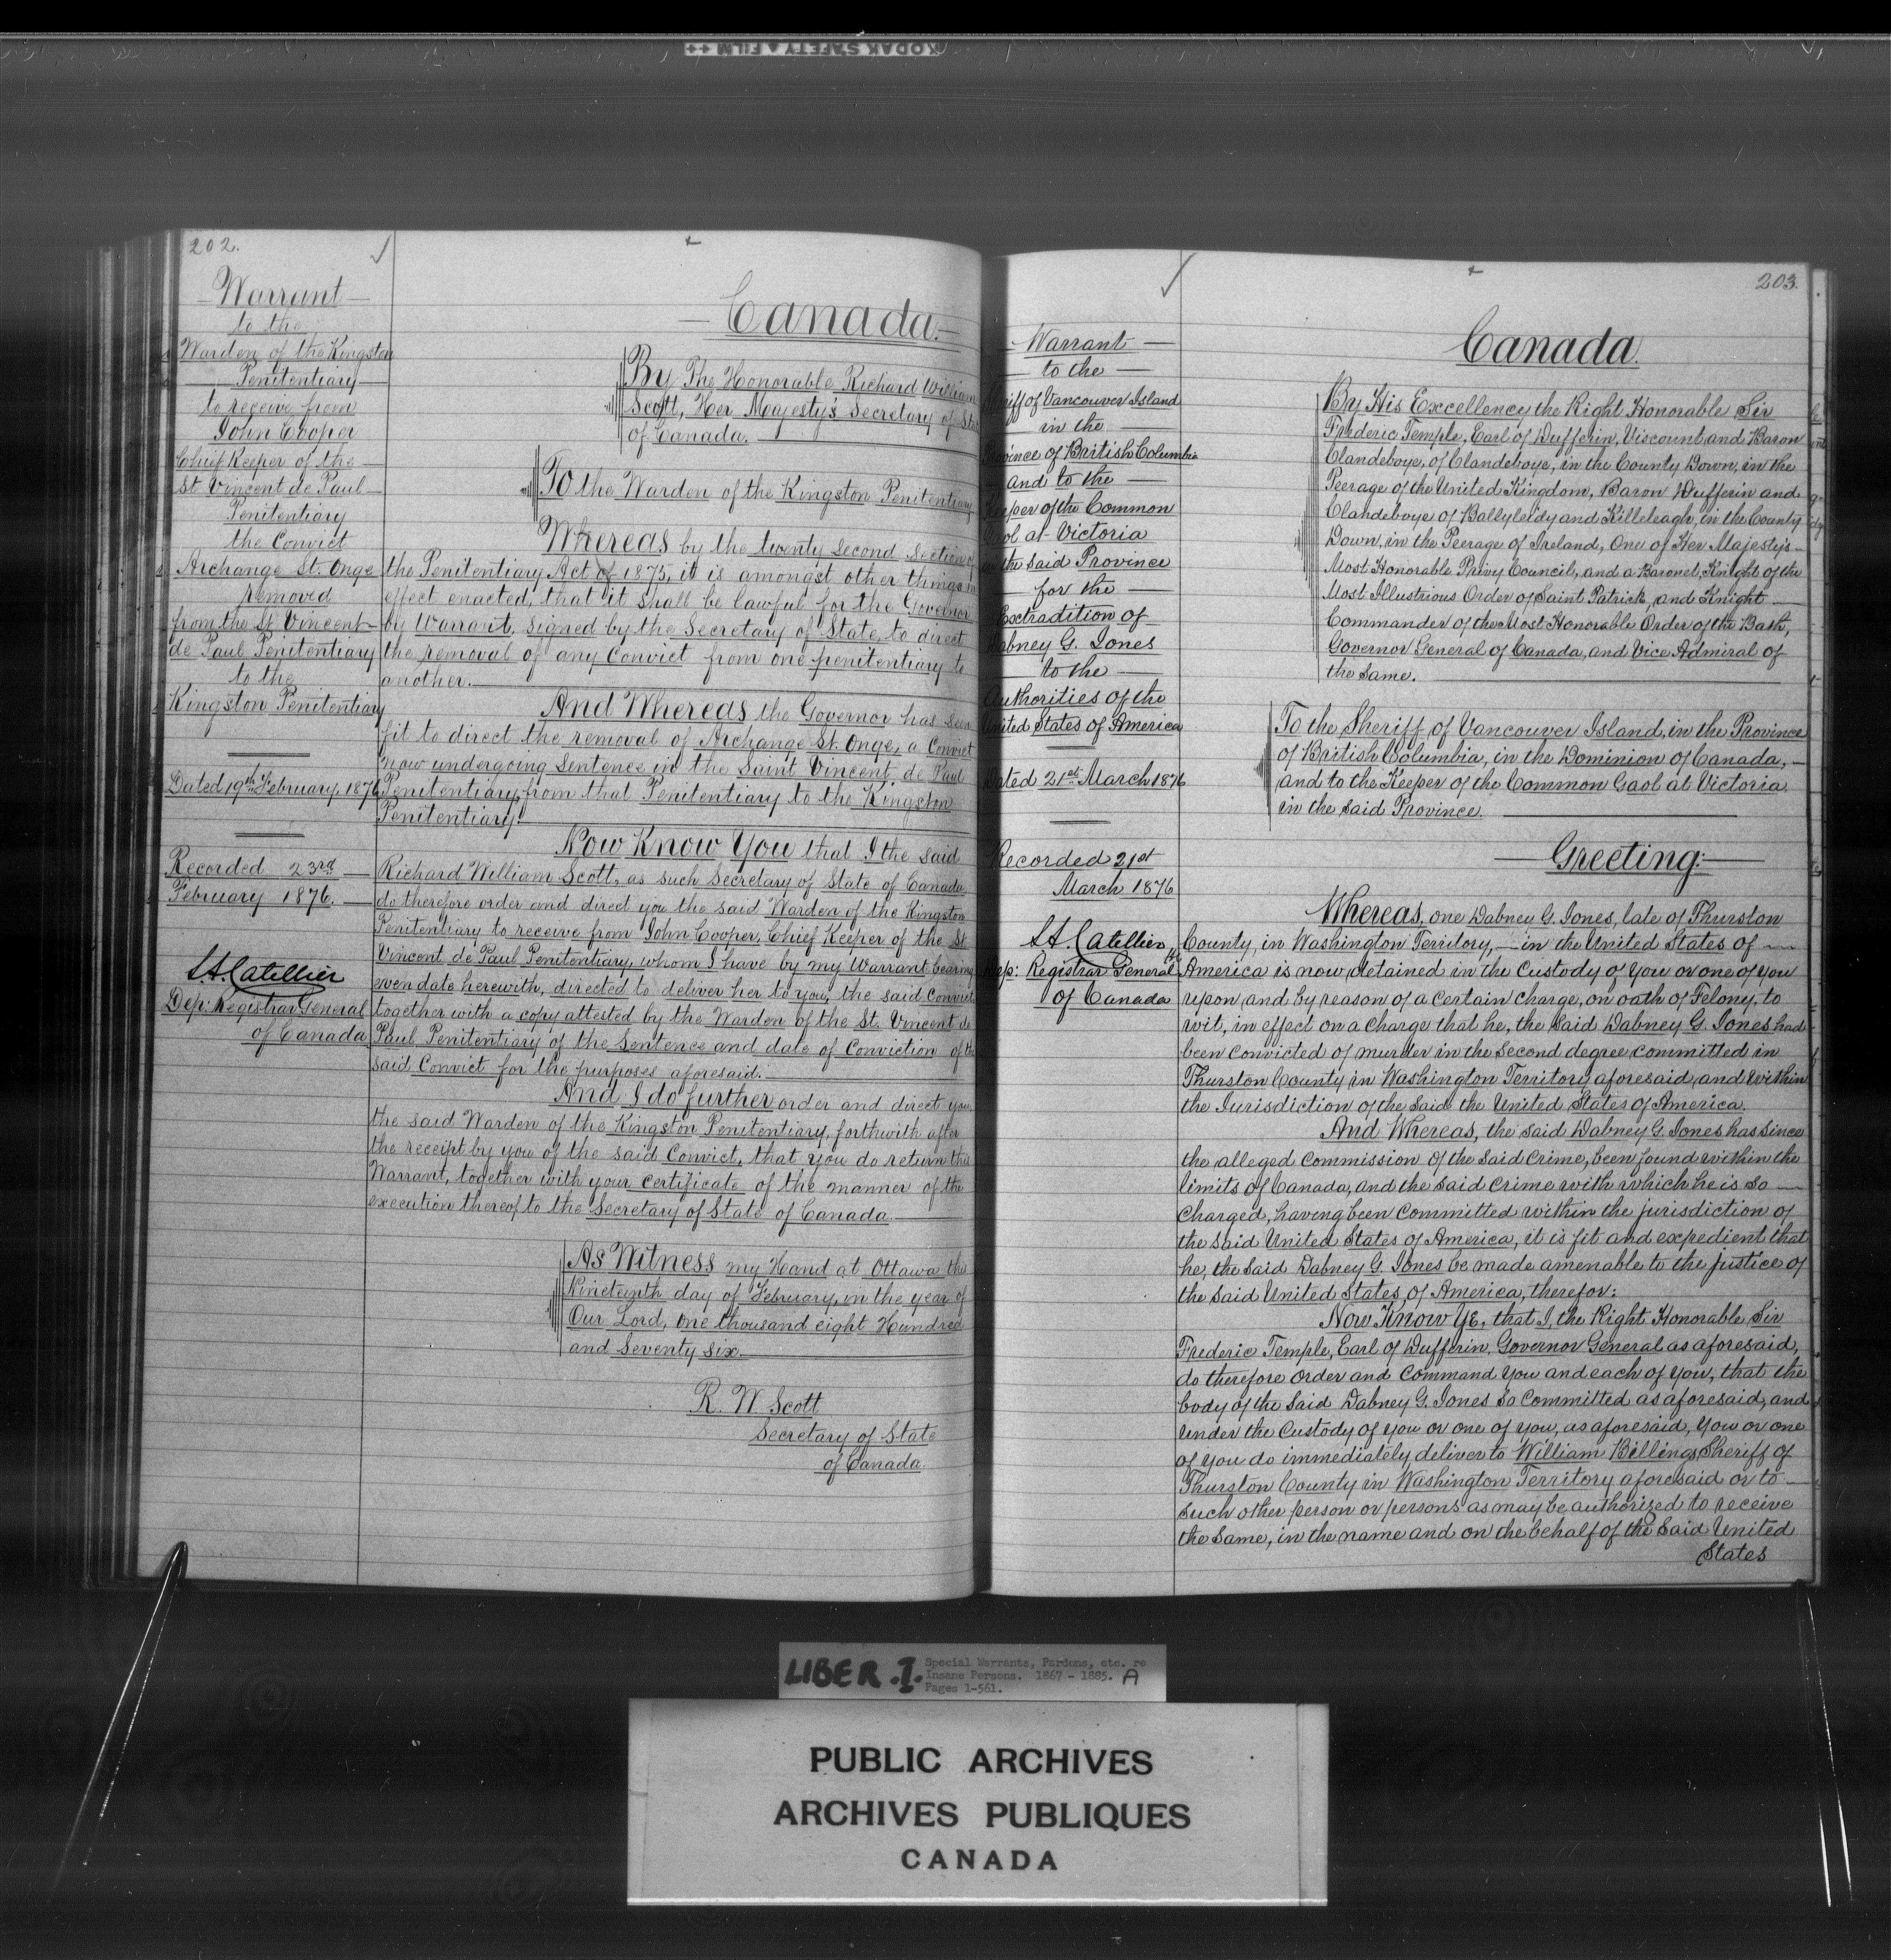 KODAK SAFETY FILM ++
202.
Warrant
to the
Warden of the Kingston
Penitentiary
to receive from
John Cooper
Chief Keeper of the
St Vincent de Paul
Penitentiary
the Convict
Archange St. Onge
removed
from the St Vincent
de Paul Penitentiary
to the
Kingston Penitentiary
Dated 19th February 1876
Recorded 23rd
February 1876.
L.A. Catellier
Dep: Registrar General
of Canada
Canada.
By The Honorable Richard William
Scott, Her Majesty's Secretary of State
of Canada.
To the Warden of the Kingston Penitentiary
Whereas by the twenty second section of
the Penitentiary Act of 1875, it is amongst other things in
effect enacted, that it shall be lawful for the Governor
by Warrant, signed by the Secretary of State, to direct
the removal of any Convict from one penitentiary to
another.
And Whereas the Governor has seen
fit to direct the removal of Archange St. Onge, a Convict
now undergoing Sentence in the Saint Vincent de Paul
Penitentiary, from that Penitentiary to the Kingston
Penitentiary.
Now Know You that I the said
Richard William Scott, as such Secretary of State of Canada,
do therefore order and direct you the said Warden of the Kingston
Penitentiary to receive from John Cooper, Chief Keeper of the St
Vincent de Paul Penitentiary, whom I have by my Warrant bearing
even date herewith, directed to deliver her to you, the said Convict
together with a copy attested by the Warden of the St. Vincent de
Paul Penitentiary of the Sentence and date of Conviction of the
said Convict for the purposes aforesaid.
And I do further order and direct you,
the said Warden of the Kingston Penitentiary, forthwith after
the receipt by you of the said Convict, that you do return this
Warrant, together with your certificate of the manner of the
execution thereof to the Secretary of State of Canada.
As Witness my Hand at Ottawa this
Nineteenth day of February, in the year of
Our Lord, one thousand eight Hundred
and Seventy six
R. W. Scott
Secretary of State
of Canada.
203.
Warrant
to the
Sheriff of Vancouver Island
in the
Province of British Columbia
and to the
Keeper of the Common
Gaol at Victoria
in the said Province
for the
Extradition of
Dabney G. Jones
to the
Authorities of the
United States of America
Dated 21st March 1876
Recorded 21st
March 1876
L.A. Catellier
Dep: Registrar General
of Canada
Canada.
By His Excellency the Right Honorable Sir
Frederic Temple, Earl of Dufferin, Viscount and Baron
Clandeboye, of Clandeboye, in the County Down, in the
Peerage of the United Kingdom, Baron Dufferin and
Clandeboye of Ballyleidy and Killeleagh, in the County
Down, in the Peerage of Ireland, One of Her Majesty's
Most Honorable Privy Council, and a Baronet, Knight of the
Most Illustrious Order of Saint Patrick, and Knight
Commander of the Most Honorable Order of the Bath,
Governor General of Canada, and Vice Admiral of
the same.
To the Sheriff of Vancouver Island, in the Province
of British Columbia, in the Dominion of Canada,
and to the Keeper of the Common Gaol at Victoria
in the said Province.
Greeting:
Whereas, one Dabney G. Jones, late of Thurston
County, in Washington Territory, in the United States of
America is now detained in the Custody of you or one of you
upon and by reason of a certain charge, on oath of Felony, to
wit, in effect on a charge that he, the said Dabney G. Jones had
been convicted of murder in the second degree committed in
Thurston County in Washington Territory aforesaid and within
the Jurisdiction of the said the United States of America.
And Whereas, the said Dabney G. Jones has since
the alleged commission of the said crime, been found within the
limits of Canada, and the said crime with which he is so
charged, having been committed within the jurisdiction of
the said United States of America, it is fit and expedient that
he, the said Dabney G. Jones be made amenable to the justice of
the said United States of America, therefor:
Now Know Ye, that I, the Right Honorable Sir
Frederic Temple, Earl of Dufferin, Governor General as aforesaid,
do therefore order and Command you and each of you, that the
body of the said Dabney G. Jones so Committed as aforesaid, and
under the Custody of you or one of you, as aforesaid, you or one
of you do immediately deliver to William Billings Sheriff of
Thurston County in Washington Territory aforesaid or to
such other person or persons as may be authorized to receive
the same, in the name and on the behalf of the said United
States
LIBER. I.
Special Warrants, Pardons, etc. re
Insane Persons. 1867 - 1885. A
Pages 1-561.
PUBLIC ARCHIVES
ARCHIVES PUBLIQUES
CANADA